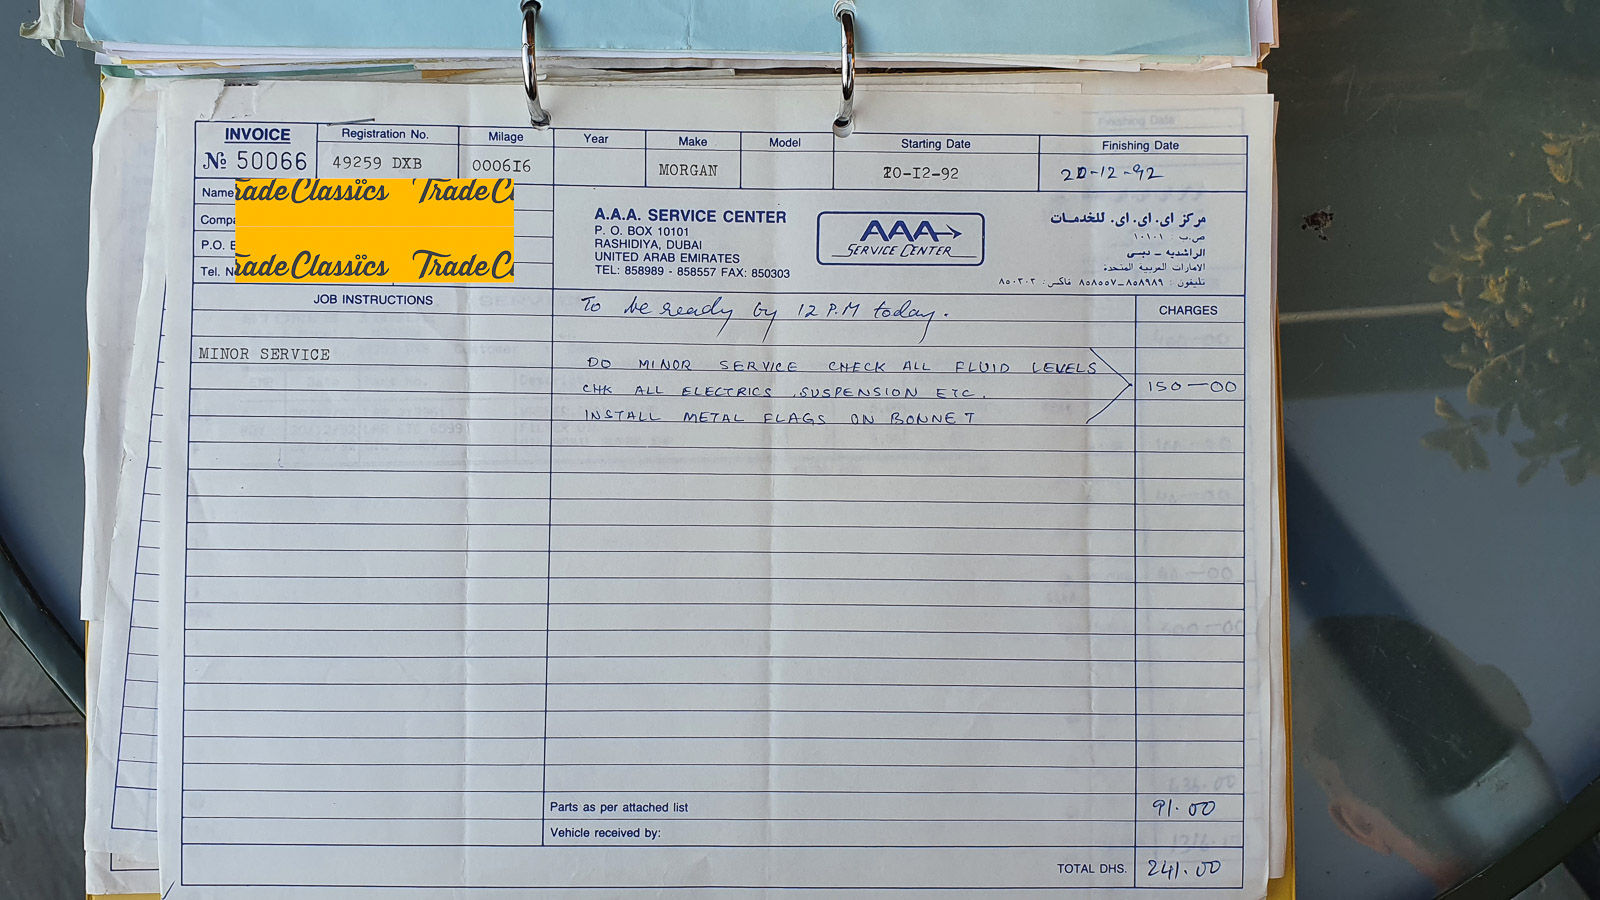 INVOICE
№ 50066
Registration No.
49259 DXB
Milage
000616
Year
Make
MORGAN
Model
Starting Date
20-12-92
Finishing Date
20-12-92
Name
Comp
P.O.
Tel. No
Trade Classics Trade C
Trade Classics Trade C
A.A.A. SERVICE CENTER
P. O. BOX 10101
RASHIDIYA, DUBAI
UNITED ARAB EMIRATES
TEL: 858989 - 858557 FAX: 850303
AAA
SERVICE CENTER
مركز اى. اى. اى. للخدمات
ص.ب : ١٠١٠١
الراشديه ـ دبى
الامارات العربية المتحدة
تليفون : ٨٥٨٩٨٩ــ٨٥٨٥٥٧ فاكس: ٨٥٠٣٠٣
JOB INSTRUCTIONS
To be ready by 12 P.M today.
CHARGES
MINOR SERVICE
DO MINOR SERVICE CHECK ALL FLUID LEVELS
CHK ALL ELECTRICS, SUSPENSION ETC.
150-00
INSTALL METAL FLAGS ON BONNET
Parts as per attached list
91.00
Vehicle received by:
TOTAL DHS.
241.00